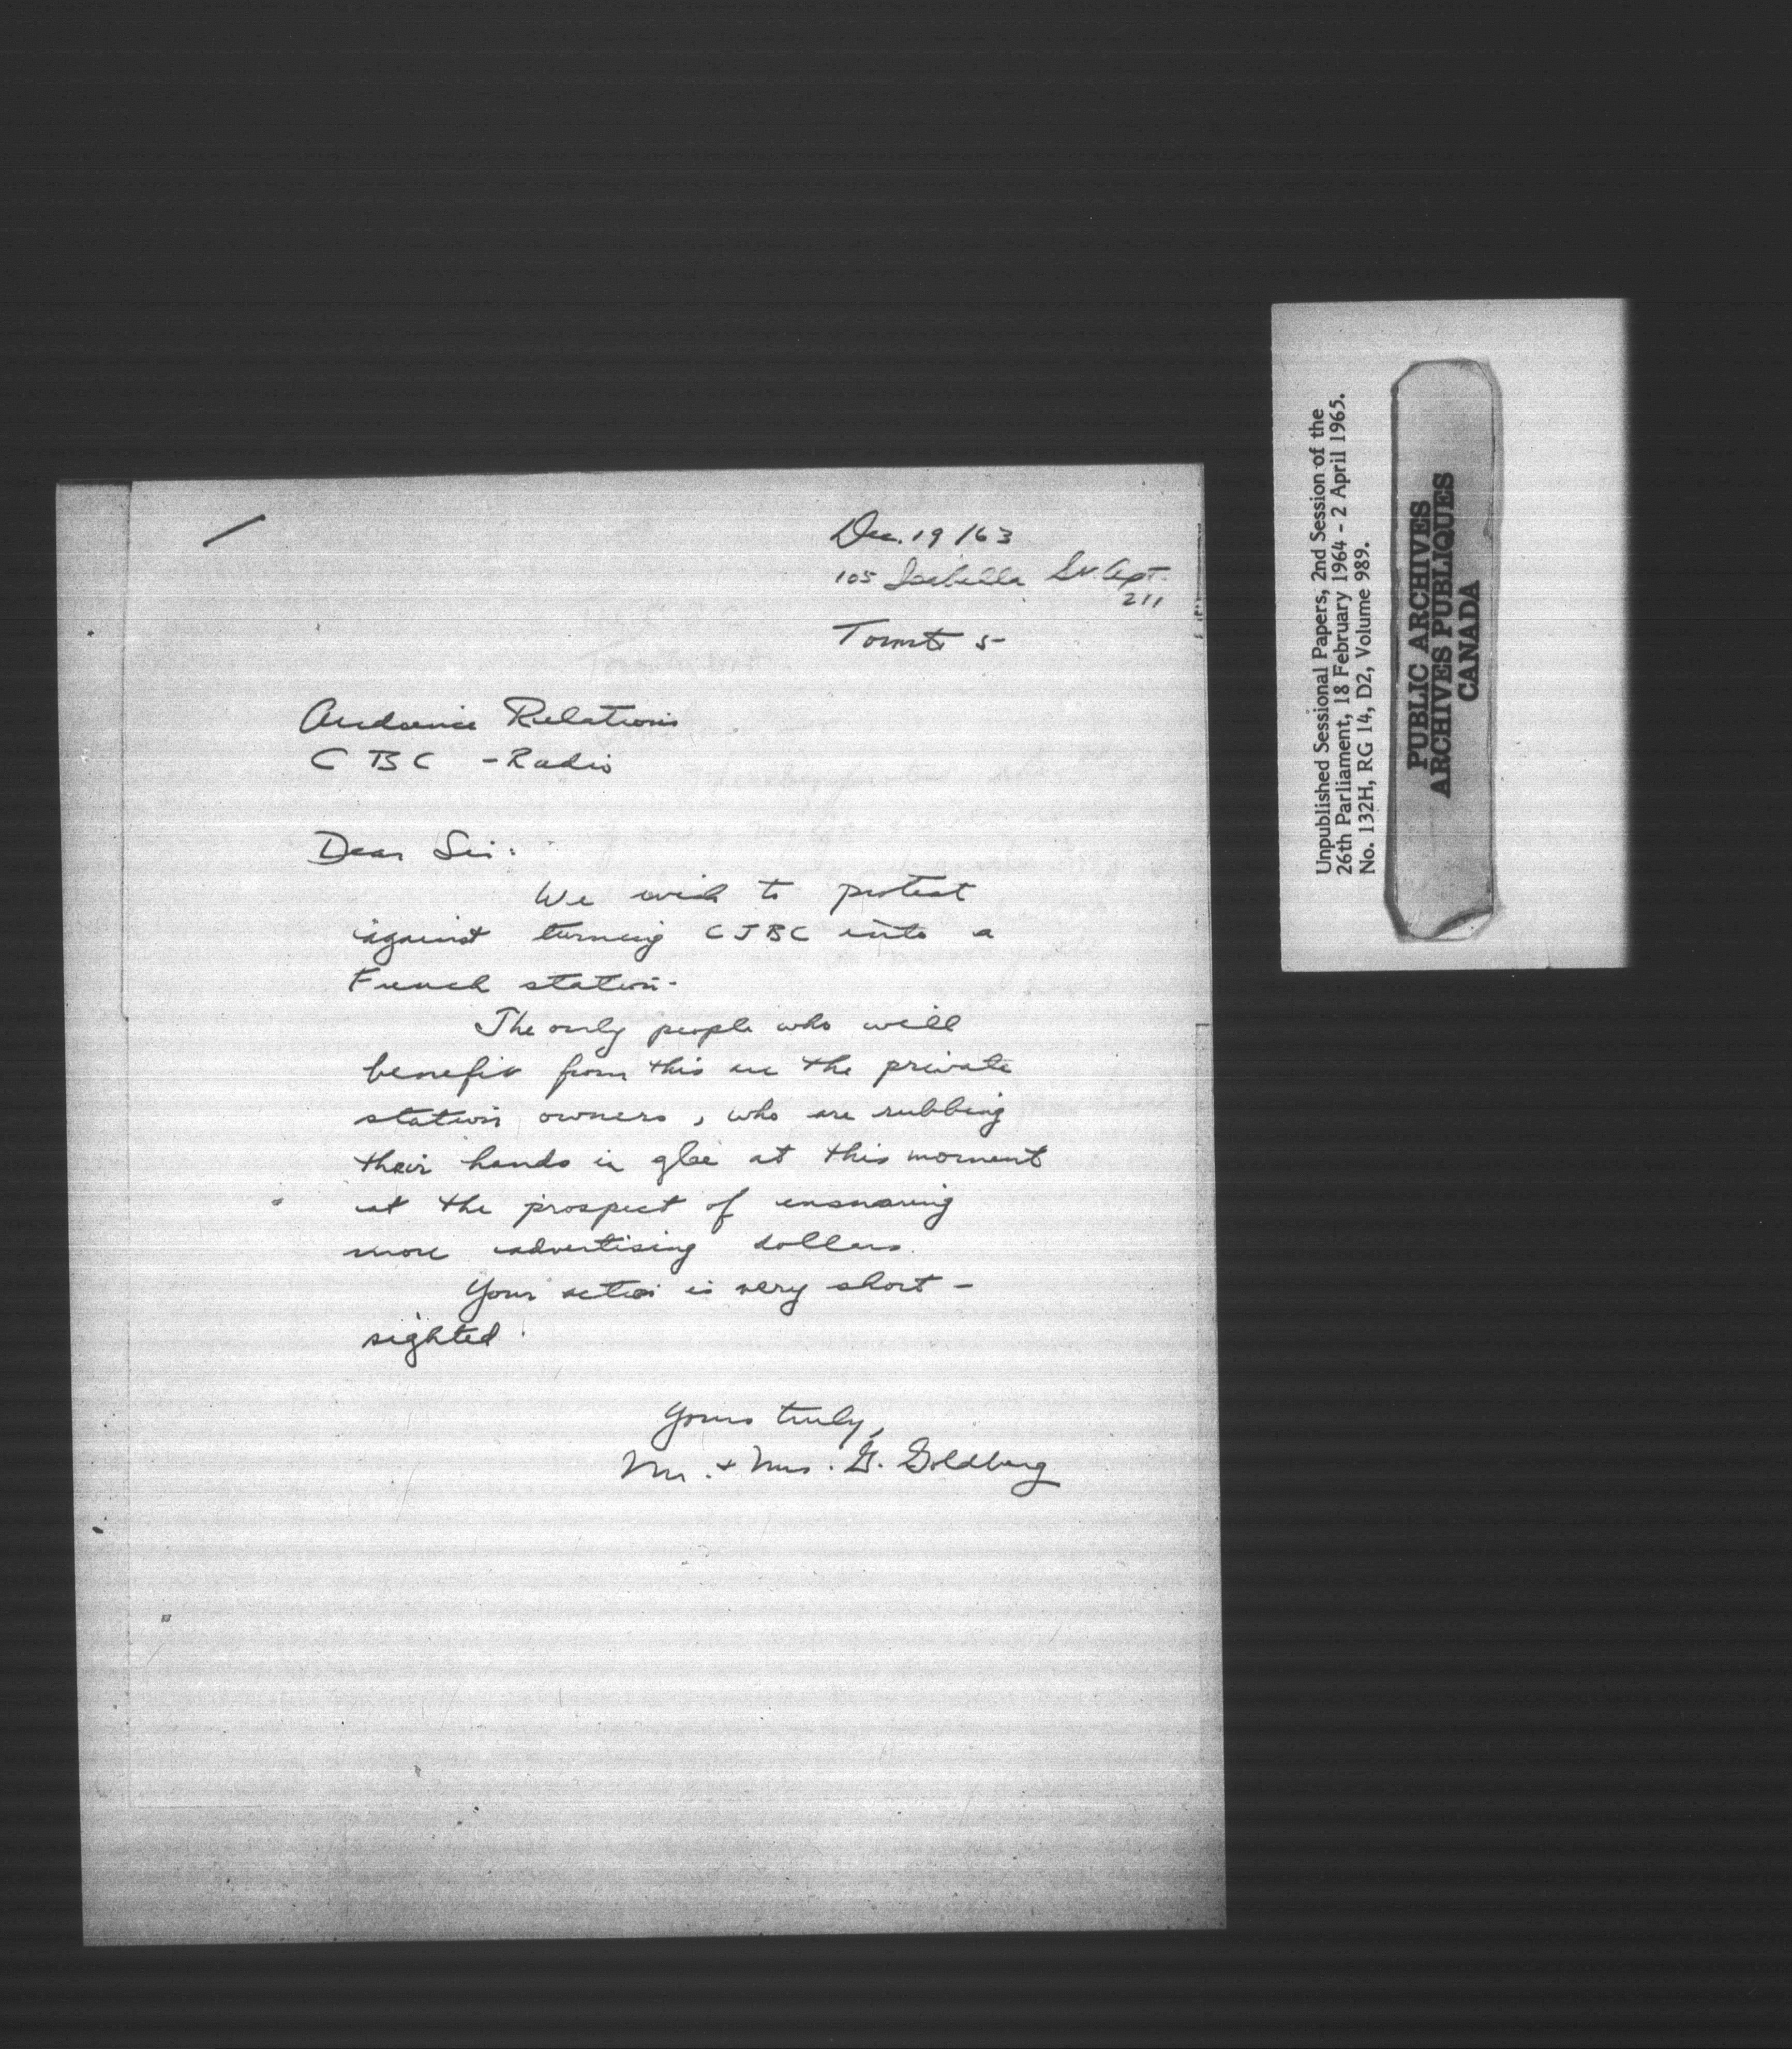 Dec. 19/63
105 Isabella St. Apt.
211
Toronto 5
Audience Relations
CBC - Radio
Dear Sir:
We wish to protest
against turning CJBC into a
French station.
The only people who will
benefit from this are the private
station owners, who are rubbing
their hands in glee at this moment
at the prospect of ensnaring
more advertising dollars.
Your action is very short-
sighted.
Yours truly,
Mr. + Mrs. G. Goldberg
Unpublished Sessional Papers, 2nd Session of the
26th Parliament, 18 February 1964 - 2 April 1965.
No. 132H, RG 14, D2, Volume 989.
PUBLIC ARCHIVES
ARCHIVES PUBLIQUES
CANADA